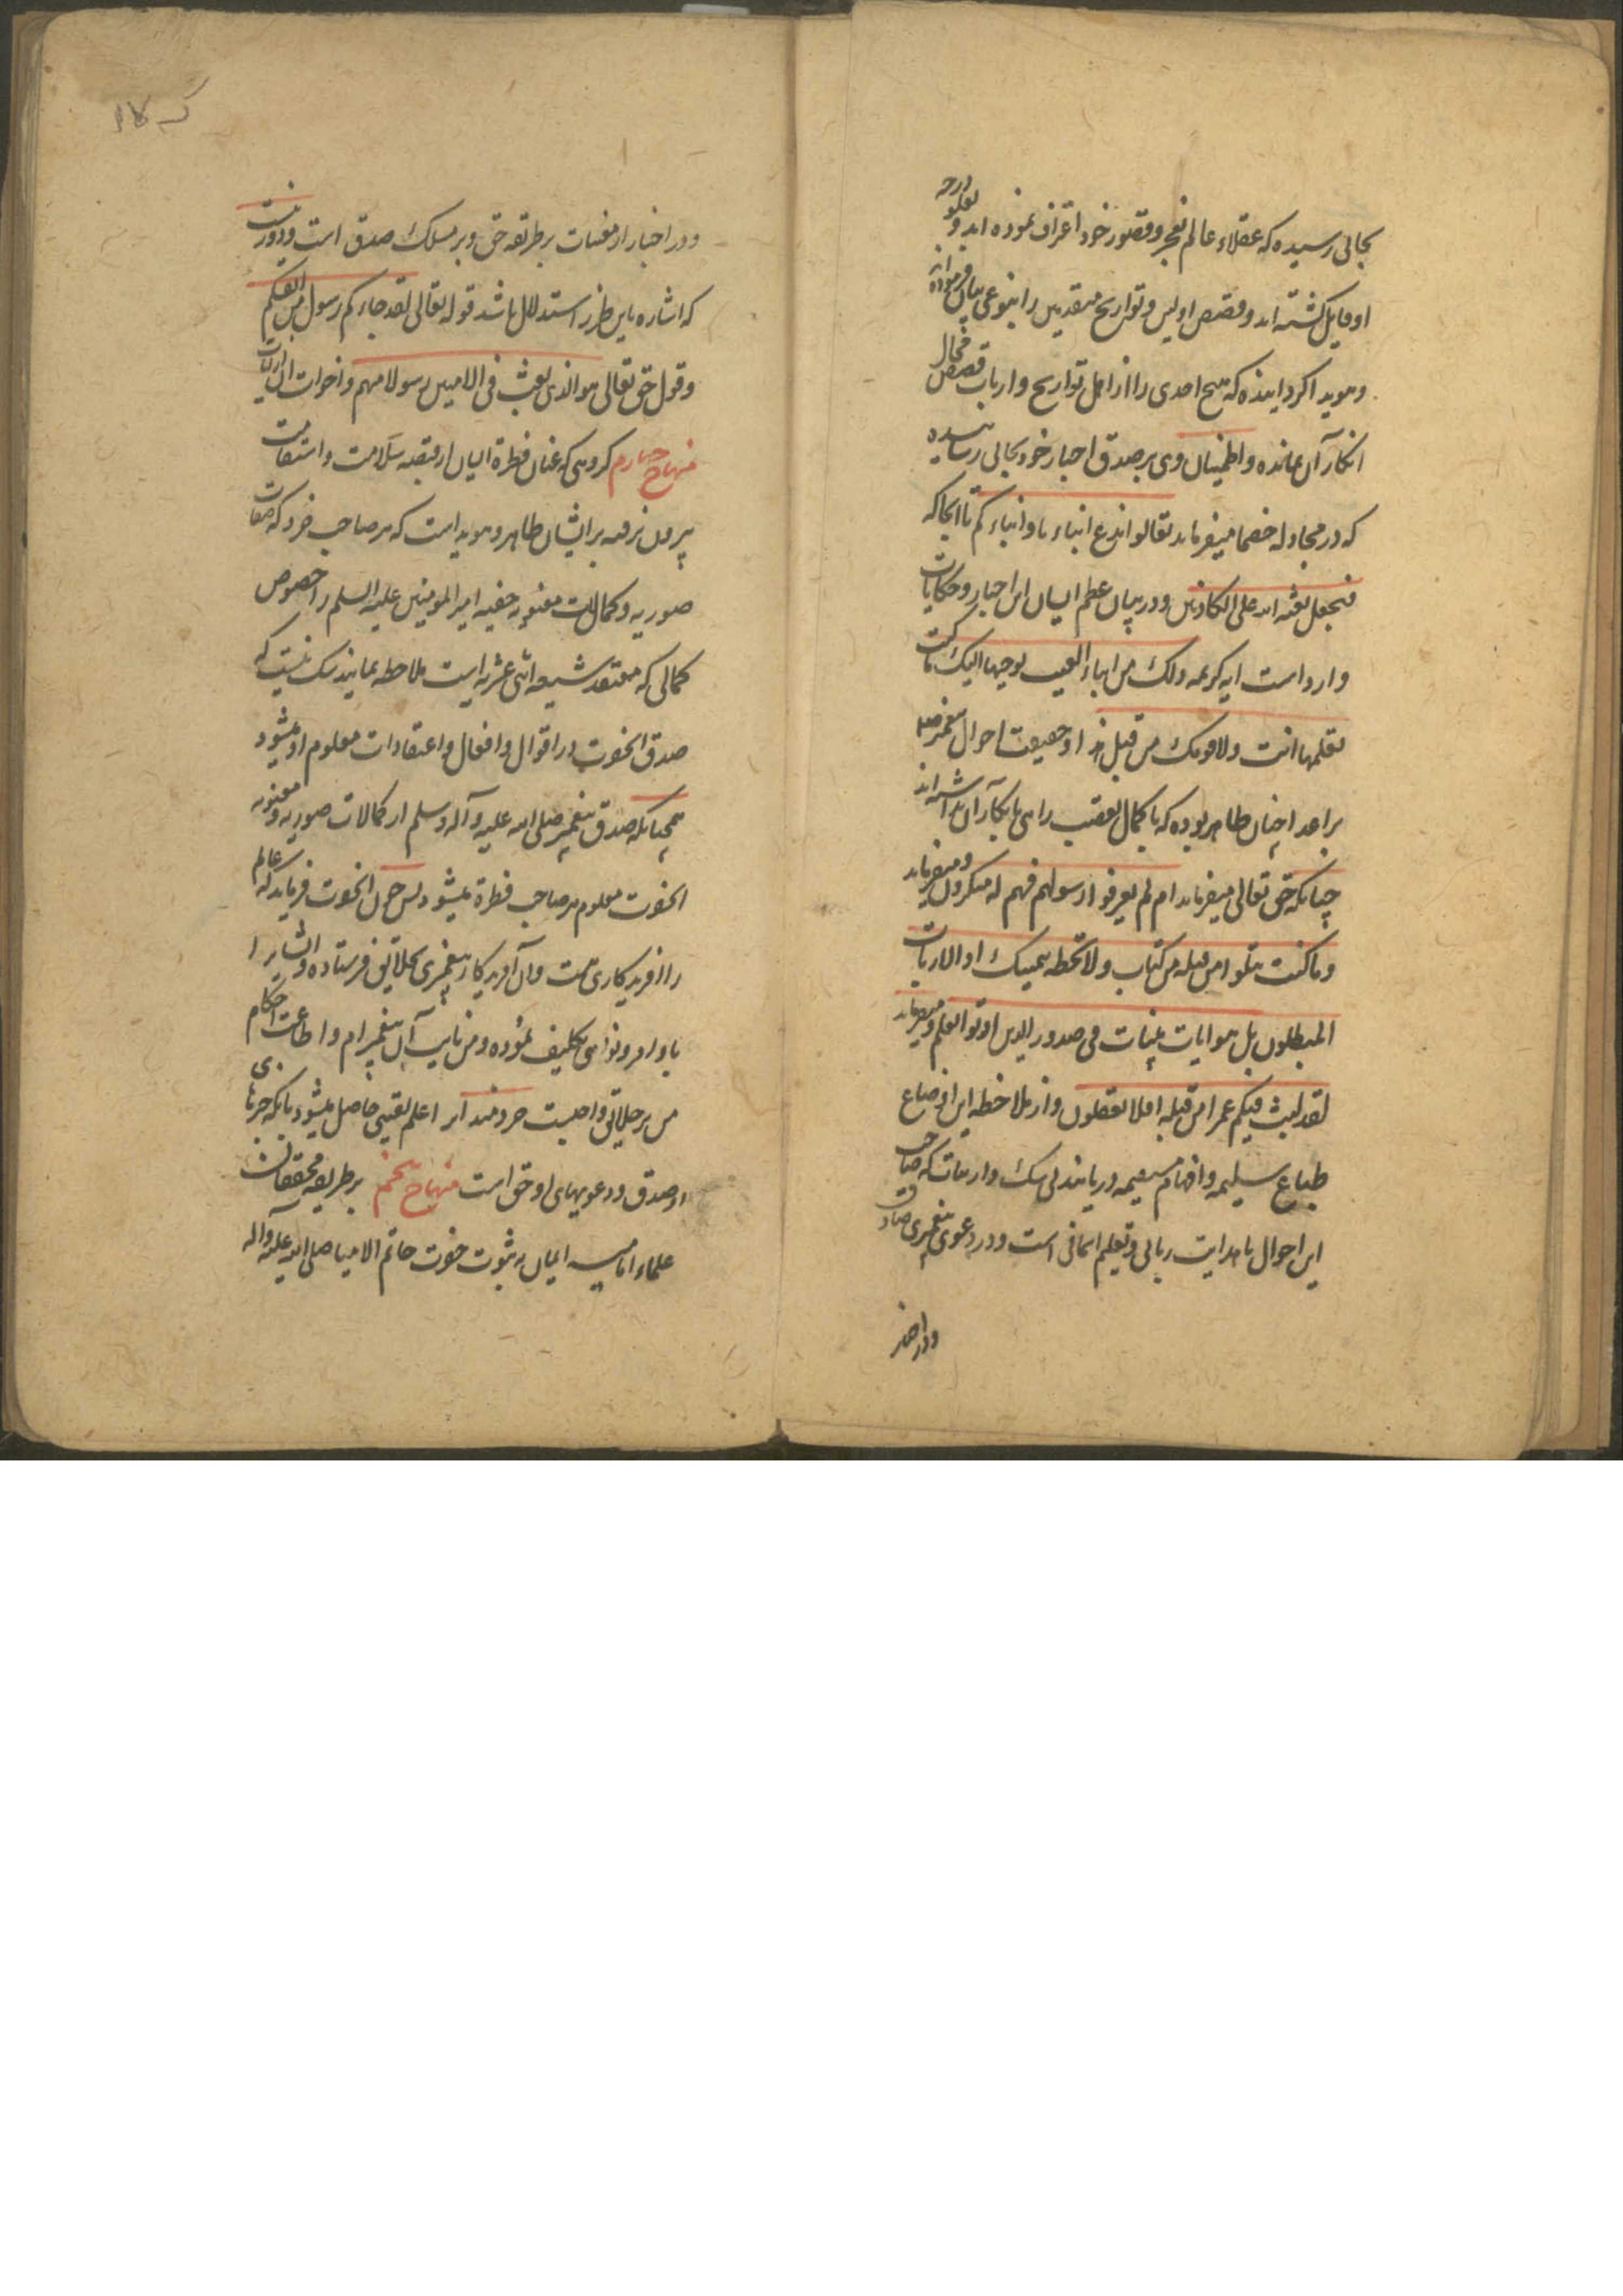 بجائی رسیده که عقلاء عالم بعجز و قصور خود اعتراف نموده اند و بعلو درجه
او قایل گشته اند و قصص اولین و تواریخ متقدمین را بنوعی بیان فرموده اند
و هویدا گردانیده که هیچ احدی را از اهل تواریخ و ارباب قصص مجال
انکار آن نمانده و اطمینان وی بر صدق اخبار خود بجائی رسیده
که در مجادله خصما میفرماید تعالوا ندع ابناءنا و ابناءکم تا انجا که
فنجعل لعنة الله علی الکاذبین و در بیان عظم الشان این اخبار و حکایات
وارد است ایه کریمه تلک من انباء الغیب نوحیها الیک ما کنت
تعلمها انت ولا قومک من قبل هذا و حقیقت احوال پیغمبر صلعم
بر اعدا چنان ظاهر بوده که با کمال تعصب راهی بانکار آن نداشته اند
چنانکه حق تعالی میفرماید ام لم یعرفوا رسولهم فهم له منکرون و میفرماید
وما کنت تتلوا من قبله من کتاب ولا تخطه بیمینک اذا لارتاب
المبطلون بل هو ایات بینات فی صدور الذین اوتوا العلم و میفرماید
لقد لبثت فیکم عمرا من قبله افلا تعقلون و از ملاحظه این اوضاع
طباع سلیمه و افهام مستقیمه دریابند بی شک و ارتیاب که صاحب
این احوال با هدایت ربانی و تعلیم اسمانی است و در دعوی پیغمبری صادق
و در اخبار
و در اخبار از مغیبات بر طریقه حق و بر مسلک صدق است و دور نیست
که اشاره باین طرز استدلال باشد قوله تعالی لقد جاءکم رسول من انفسکم
و قول حق تعالی هو الذی بعث فی الامیین رسولا منهم و اخوات این ایات
منهاج چهارم گروهی که عنان فطرة ایشان از قبضه سلامت و استقامت
بیرون نرفته بر ایشان ظاهر و هویداست که هر صاحب خرد که صفات
صوریه و کمالات معنویه حقیه امیر المومنین علیه السلم را خصوص
کمالی که معتقد شیعه اثنی عشریه است ملاحظه نماید شک نیست که
صدق انحضرت در اقوال و افعال و اعتقادات معلوم او میشود
همچنانکه صدق پیغمبر صلی الله علیه و آله و سلم از کمالات صوریه و معنویه
انحضرت معلوم هر صاحب فطرة میشود پس چون انحضرت فرماید که عالم
را افریدکاری هست و آن آفریدکار پیغمبری بخلایق فرستاده و ایشانرا
باوامر و نواهی تکلیف نموده و من نایب آن پیغمبرام و اطاعت احکام
من بر خلایق واجبست خردمند را علم یقینی حاصل میشود بانکه خبرهای
او صدق و دعویهای او حق است منهاج پنجم بر طریقه محققان
علماء امامیه ایشان به ثبوت نبوت خاتم الانبیا صلی الله علیه و آله